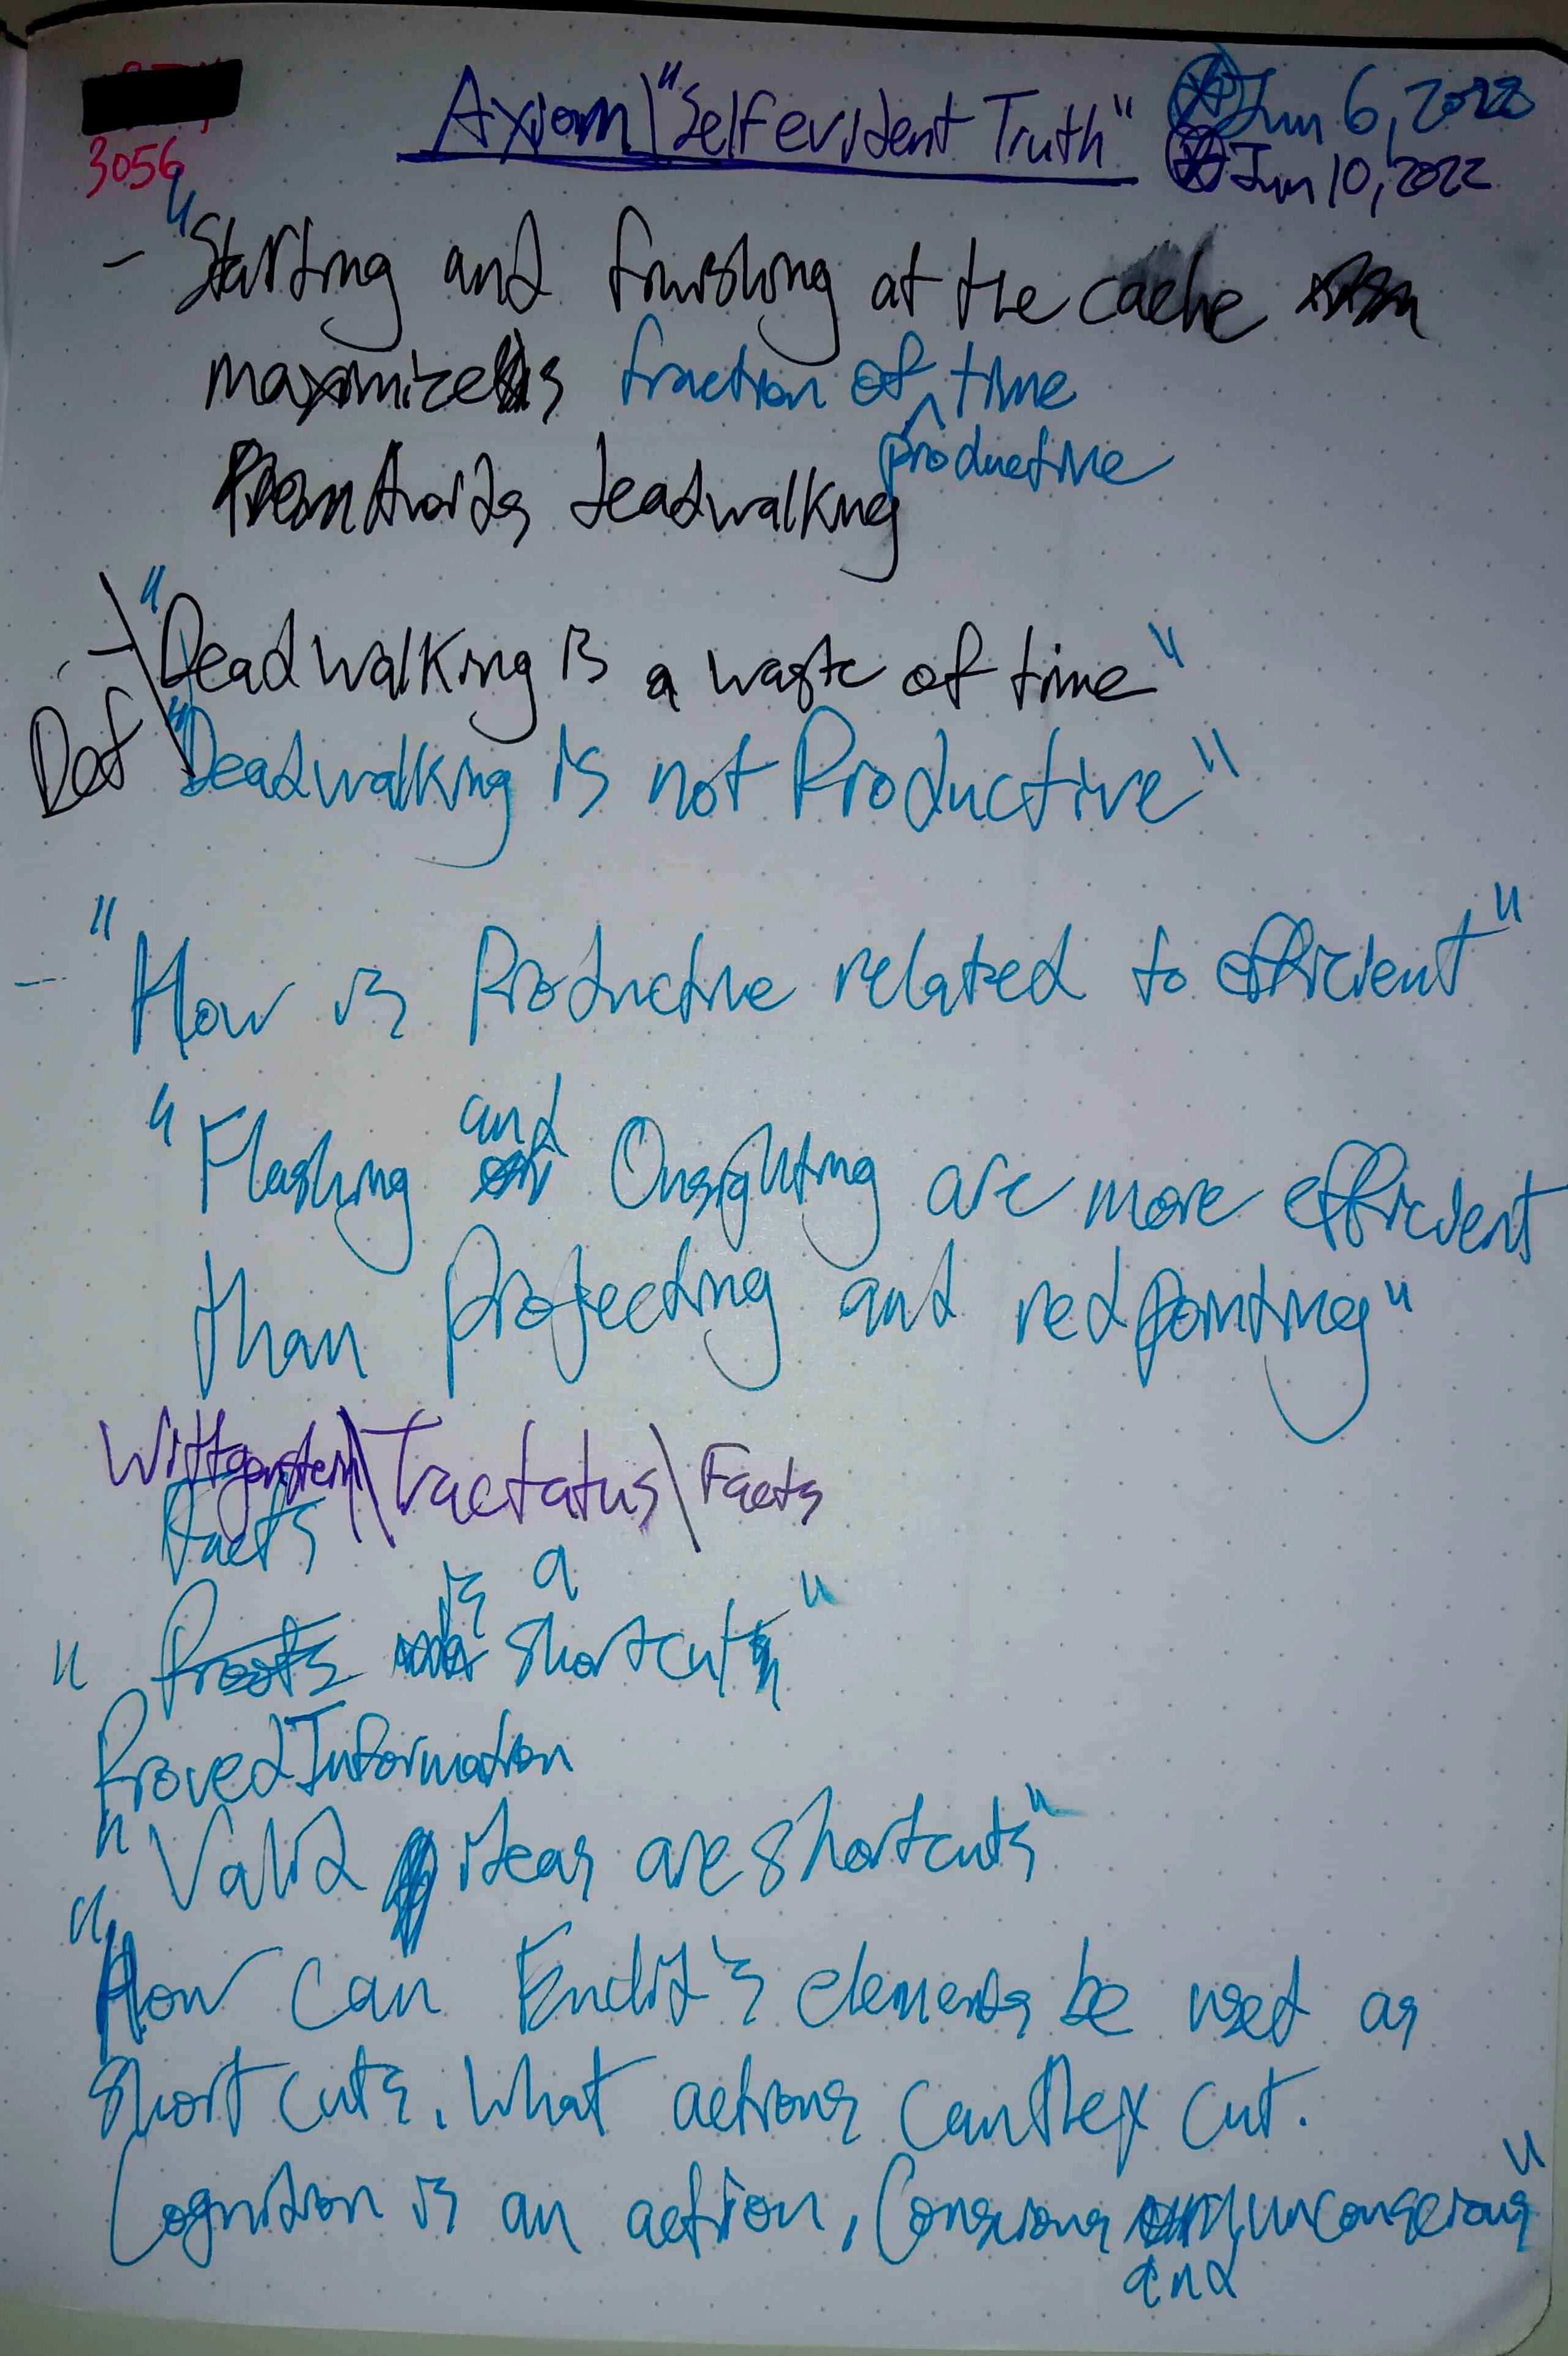 3056
Axiom\"Selfevident Truth" Jun 6, 2022
Jun 10, 2022
- "Starting and finishing at the cache
maximizes fraction of ^ time
productive
Avoids deadwalking
- "Deadwalking is a waste of time"
Def "Deadwalking is not Productive"
- "How is Productive related to efficient"
and
"Flashing Onsighting are more efficient
than projecting and redpointing"
Wittgenstein\Tractatus\Facts
Facts
is a
" Proofs shortcut"
Proved Information
"Valid ideas are shortcuts"
"How can Euclid's elements be used as
shortcuts. What actions can they cut.
Cognition is an action, Conscious unconscious"
and